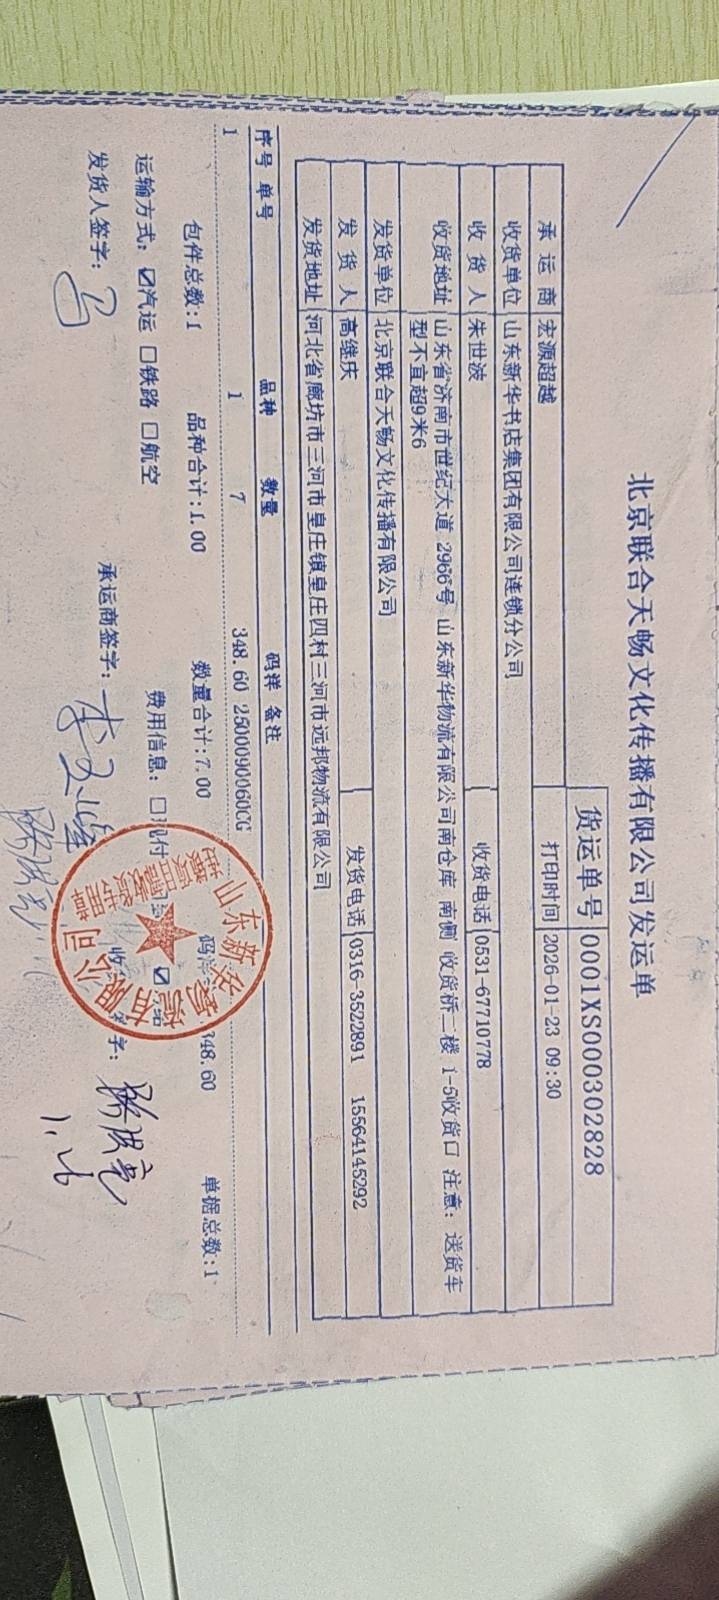 北京联合天畅文化传播有限公司发运单
货运单号 0001XS000302828
承运商 宏源超越 打印时间 2026-01-23 09:30
收货单位 山东新华书店集团有限公司连锁分公司
收货人 朱世波 收货电话 0531-67710778
收货地址 山东省济南市世纪大道 2966号 山东新华物流有限公司南仓库 南侧 收货桥二楼 1-5收货口 注意: 送货车
型不宜超9米6
发货单位 北京联合天畅文化传播有限公司
发货人 高继庆 发货电话 0316-3522891 15564145292
发货地址 河北省廊坊市三河市皇庄镇皇庄四村三河市远邦物流有限公司
序号 单号 品种 数量 码洋 备注
1 1 7 348.60 2500090060CG
包件总数:1 品种合计:1.00 数量合计:7.00 348.60 单据总数:1
运输方式: ☑汽运 □铁路 □航空 费用信息: □现付
发货人签字: 承运商签字: 字:
山东新华
有限公司